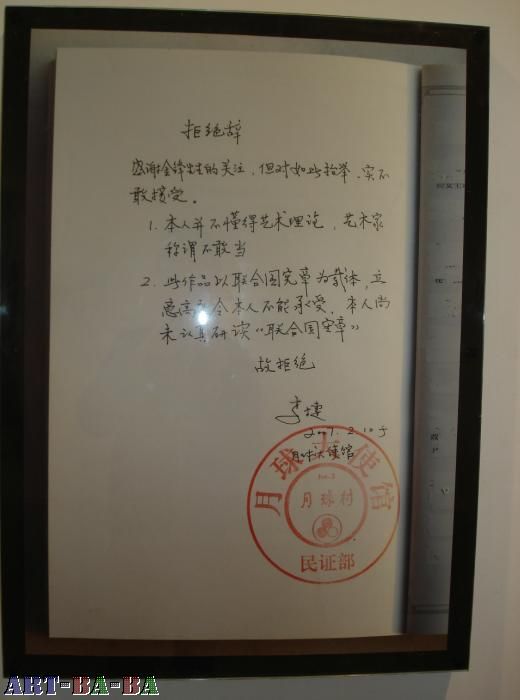 拒绝辞
感谢金锋先生的关注，但对如此抬举，实不
敢接受。
1. 本人并不懂得艺术理论，艺术家
称谓不敢当
2. 此作品以联合国宪章为载体，立
意高 令本人不能承受，本人尚
未认真研读《联合国宪章》
故拒绝
李捷
2007.2.10于
月球大使馆
月球大使馆
月球村
民证部
ART-BA-BA